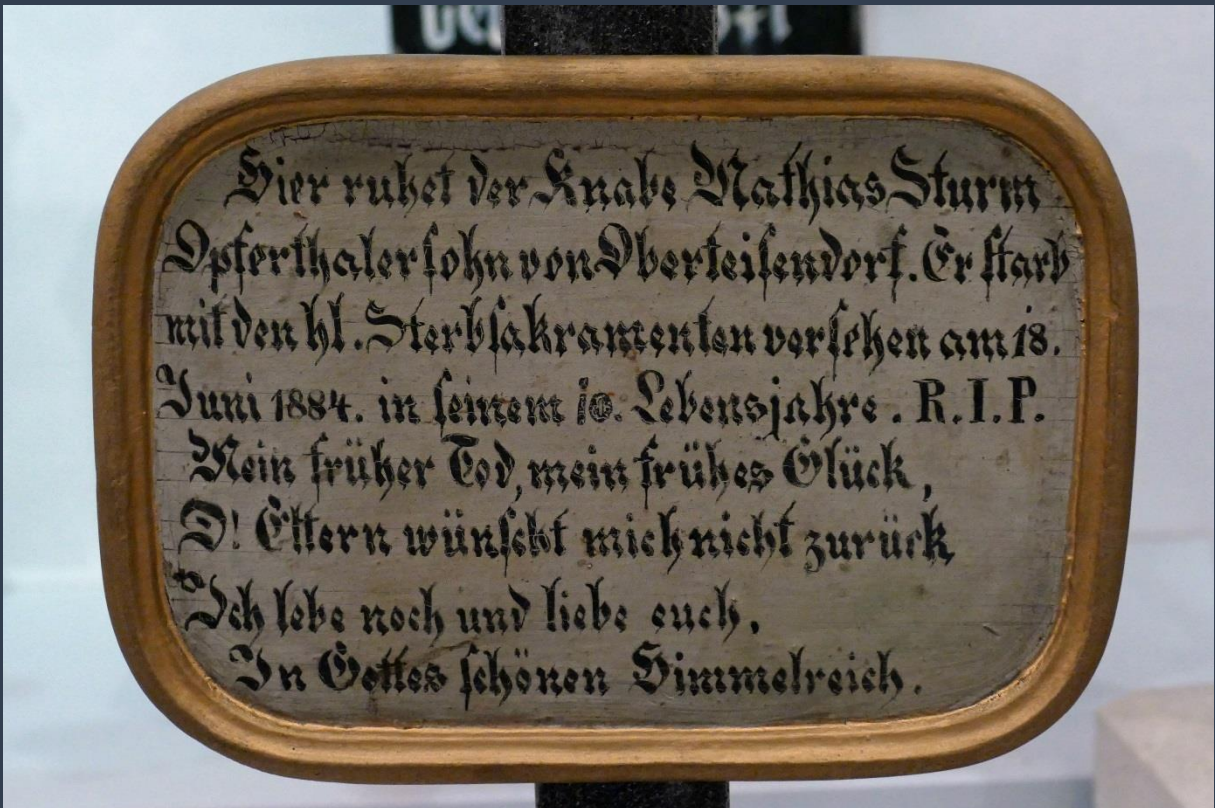 Hier ruhet der Knabe Mathias Sturm
Opferthalersohn von Oberteisendorf. Er starb
mit den hl. Sterbsakramenten versehen am 18.
Juni 1884. in seinem 10. Lebensjahre. R.I.P.
Mein früher Tod, mein frühes Glück,
O! Eltern wünscht mich nicht zurück
Ich lebe noch und liebe euch,
In Gottes schönen Himmelreich.